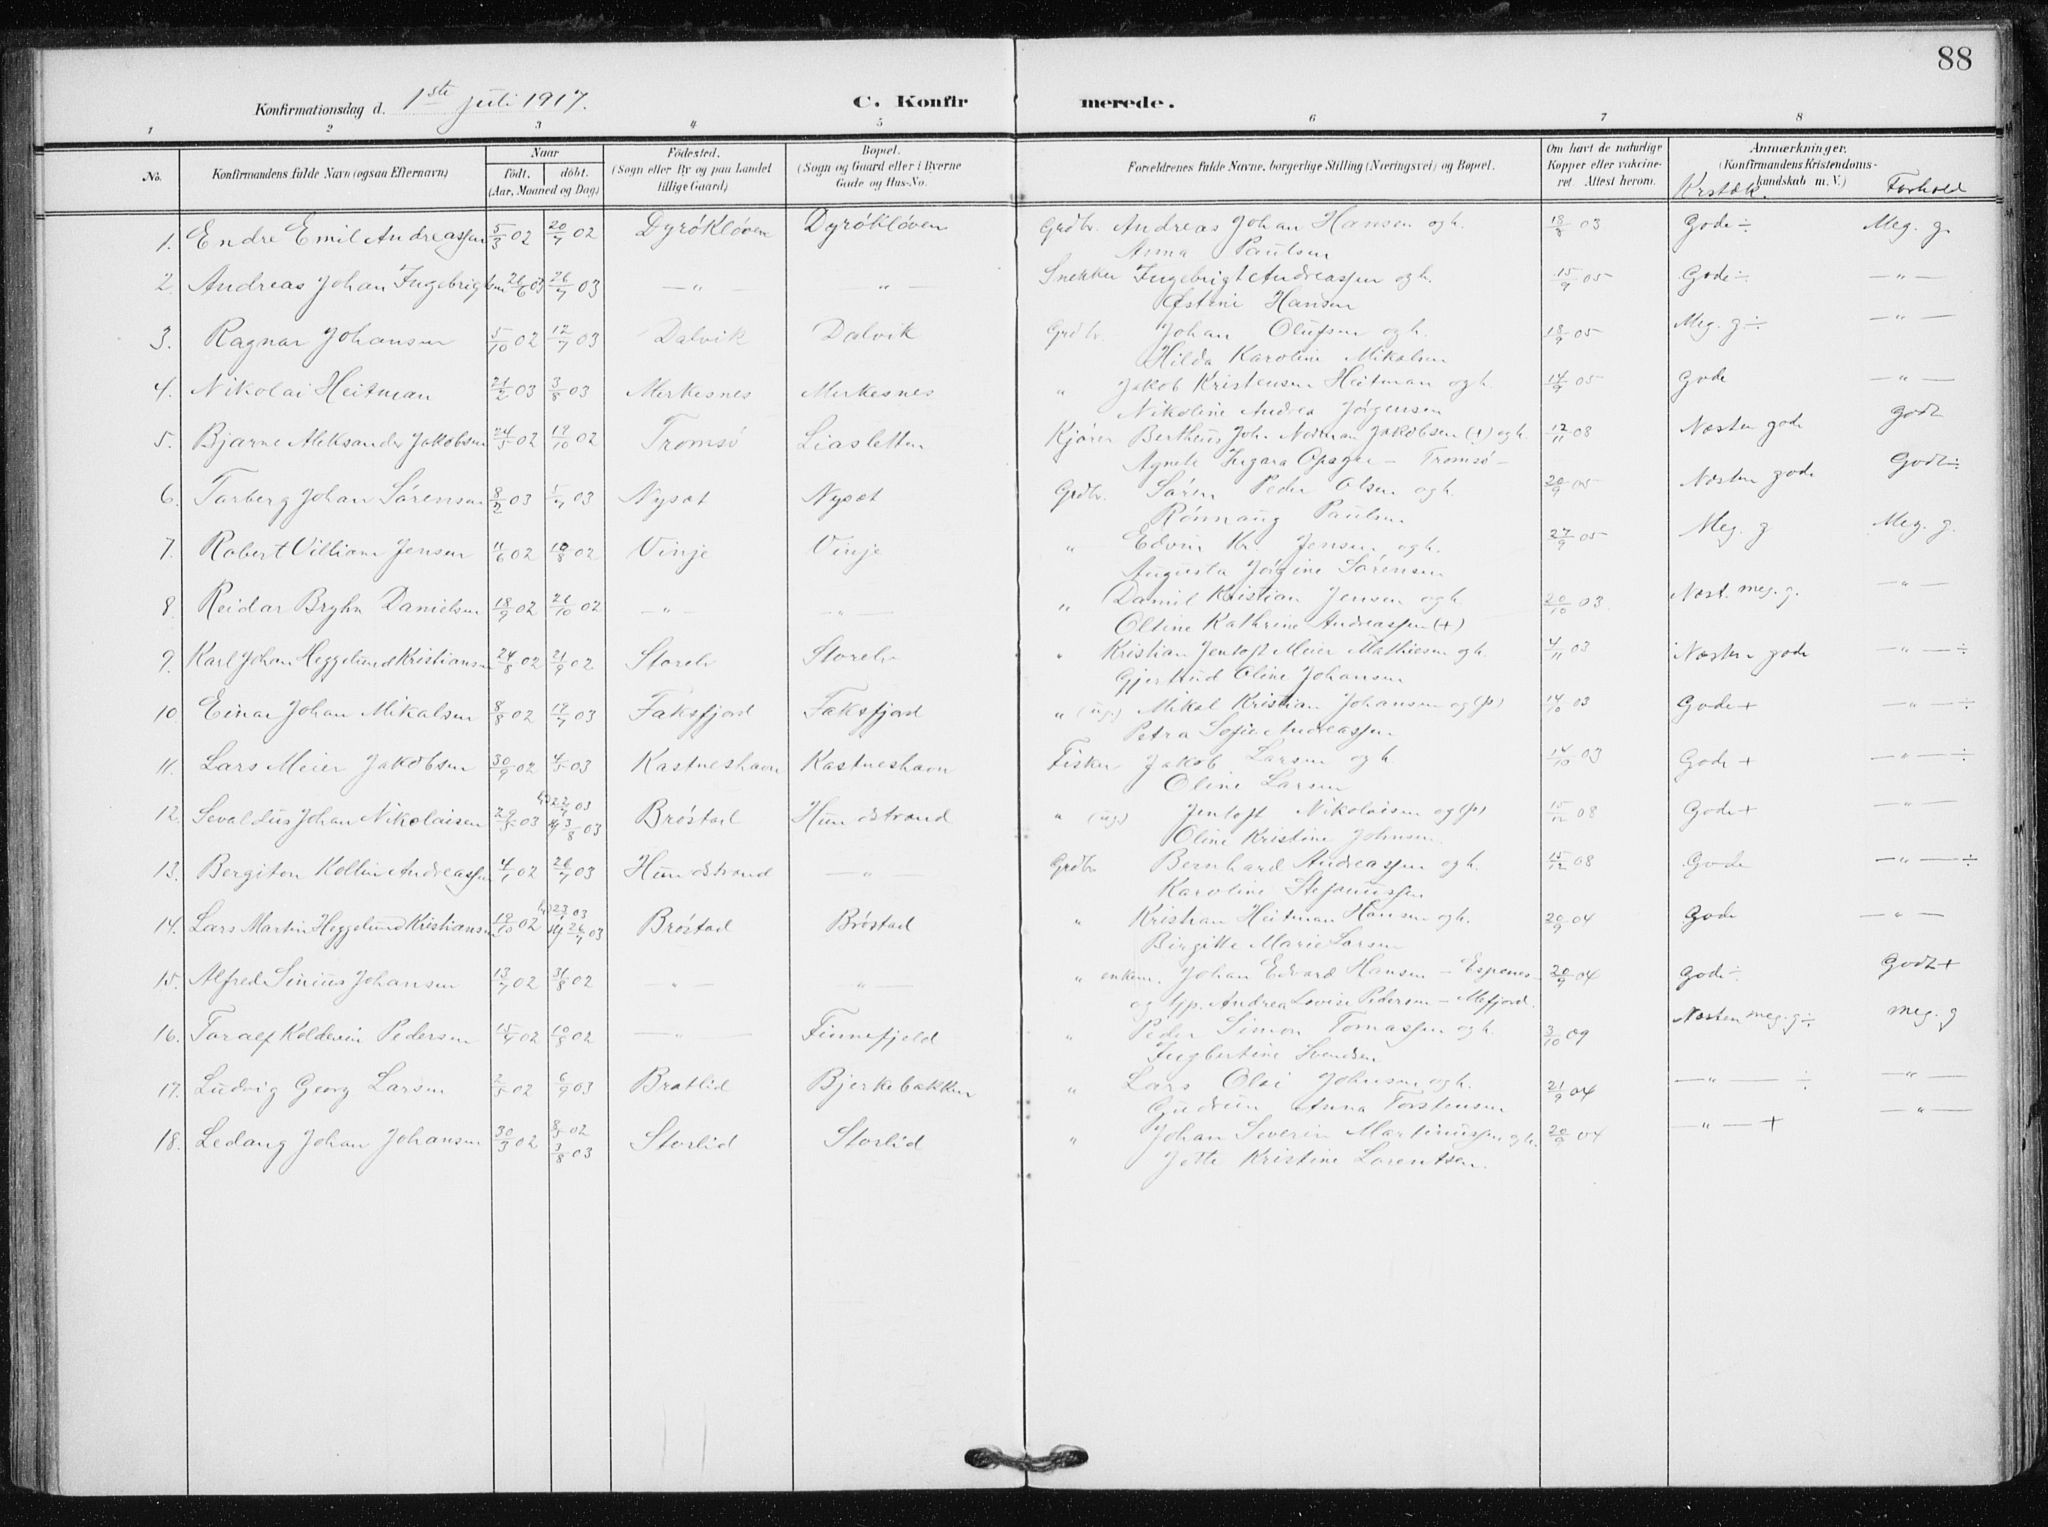 88
Konfirmationsdag d. 1ste juli 1917. C. Konfirmerede.
1 2 3 4 5 6 7 8
No. Konfirmandens fulde Navn (ogsaa Efternavn) Naar födt. döbt. (Aar, Maaned og Dag) Födested. (Sogn eller By og paa Landet tillige Gaard) Bopæl. (Sogn og Gaard eller i Byerne Gade og Hus-No. Forældrenes fulde Navne, borgerlige Stilling (Næringsvei) og Bopæl. Om havt de naturlige Kopper eller vakcineret. Attest herom. Anmærkninger, (Konfirmandens Kristendomskundskab m. V.) Krstdk. Forhold
1. Endre Emil Andreassen 5/3 02 20/7 02 Dyrökløven Dyrökløven Grdbr. Andreas Johan Hansen og h. 18/8 03 Gode ÷ Meg. g.
Anna Paulsen
2. Andreas Johan Ingebrigtsen 26/6 03 26/7 03 — " — — " — Snekker Ingebrigt Andreassen og h. 15/9 05 Gode ÷ — " —
Østine Hansen
3. Ragnar Johansen 5/10 02 12/7 03 Dalvik Dalvik Grdbr. Johan Olufsen og h. 18/9 05 Meg. g ÷ — " —
Hilda Karoline Mikalsen
4. Nikolai Heitman 21/2 03 3/8 03 Merkesnes Merkesnes " Jakob Kristensen Heitman og h. 14/9 05 Gode — " —
Nikoline Andrea Jörgensen
5. Bjarne Aleksander Jakobsen 24/5 02 19/10 02 Tromsö Liasletten Kjörer Bertheus Joh. Norman Jakobsen (+) og h. 17/11 08 Næsten gode Godt
Agnete Ingara — Tromsö —
6. Torberg Johan Sörensen 8/2 03 1/7 03 Nysæt Nysæt Grdbr. Sören Peder Olsen og h. 20/9 05 Næsten gode Godt ÷
Rönnaug Paulsen
7. Robert Villiam Jensen 11/6 02 10/8 02 Vinje Vinje " Edvin Kr. Jensen og h. 27/9 05 Meg. g Meg. g.
Augusta Jörgine Sörensen
8 Reidar Bryhn Danielsen 18/9 02 26/10 02 — " — — " — " Daniel Kristian Jensen og h. 20/10 03. Næst. meg. g. — " —
Oltine Kathrine Andreassen (+)
9. Karl Johan Heggelund Kristiansen 24/8 02 21/9 02 Storelv Storelv " Kristian Jentoft Meier Mathiesen og h. 4/11 03 Næsten gode — " — ÷
Gjertrud Oline Johansen
10. Einar Johan Mikalsen 8/8 02 19/7 03 Faksfjord Faksfjord " (ug.) Mikal Kristian Johansen og (p) 14/10 03 Gode + — " — ÷
Petra Sofie Andreassen
11. Lars Meier Jakobsen 30/9 02 4/5 03 Kastneshavn Kastneshavn Fisker Jakob Larsen og h. 14/10 03 Gode + — " — ÷
Oline Larsen
12. Sevaldus Johan Nikolaisen 29/5 03 22/7 03 3/8 03 Bröstad Hundstrand " (ug.) Jentoft Nikolaisen og (p) 15/12 08 Gode + — " —
Oline Kristine Johnsen
13. Bergiton Kollin Andreassen 4/7 02 26/7 03 Hundstrand — " — Grdbr Bernhard Andreassen og h. 15/12 08 Gode — " — ÷
Karoline Stefanussen
14. Lars Martin Heggelund Kristiansen 19/10 02 23/3 03 26/7 03 Bröstad Bröstad " Kristian Heitman Hansen og h. 20/9 04 Gode — " —
Birgitte Marie Larsen
15. Alfred Sinius Johansen 13/7 02 31/8 02 — " — — " — " enkem. Johan Edvard Hansen — Espenes — 20/9 04 Gode ÷ Godt +
og tjp. Andrea Lovise Pedersen — Mefjord.
16. Toralf Koldevin Pedersen 15/7 02 10/8 02 — " — Finnefjeld " Peder Simon Tomassen og h. 3/10 09 Næsten meg. g ÷ meg. g
Ingbertine Svendsen
17. Ludvig Georg Larsen 2/5 02 6/9 03 Bratlid Bjerkebakken " Lars Olai Johnsen og h. 21/9 04 — " — ÷ — " —
Gudrun Anna Torstensen
18. Ledang Johan Johansen 30/3 02 8/5 02 3/8 03 Storlid Storlid " Johan Severin Martinussen og h. 20/9 04 — " — + — " —
Jette Kristine Lorentsen.